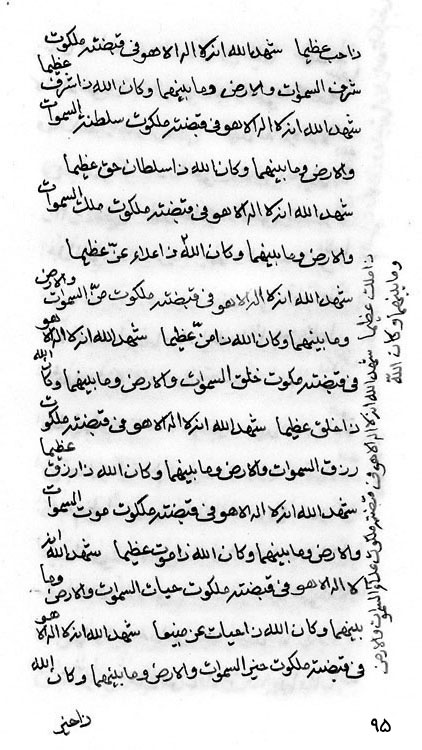 ذاحب عظیما شهد الله انه لا اله الا هو فی قبضته ملکوت
شرف السموات والارض وما بینهما وکان الله ذا شرف عظیما
شهد الله انه لا اله الا هو فی قبضته ملکوت سلطنة السموات
والارض وما بینهما وکان الله ذا سلطان حق عظیما
شهد الله انه لا اله الا هو فی قبضته ملکوت ملک السموات
والارض وما بینهما وکان الله ذا علاء عز عظیما
شهد الله انه لا اله الا هو فی قبضته ملکوت من السموات والارض
وما بینهما وکان الله ذا من عظیما شهد الله انه لا اله الا هو
فی قبضته ملکوت خلق السموات والارض وما بینهما وکان الله
ذا خلق عظیما شهد الله انه لا اله الا هو فی قبضته ملکوت
رزق السموات والارض وما بینهما وکان الله ذا رزق عظیما
شهد الله انه لا اله الا هو فی قبضته ملکوت موت السموات
والارض وما بینهما وکان الله ذا موت عظیما شهد الله انه
لا اله الا هو فی قبضته ملکوت حیات السموات والارض وما
بینهما وکان الله ذا حیات عن منیعا شهد الله انه لا اله الا هو
فی قبضته ملکوت السموات والارض وما بینهما وکان الله
ذا ملک عظیما شهد الله انه لا اله الا هو فی قبضته ملکوت علاء السموات والارض
وما بینهما وکان الله
۹۵